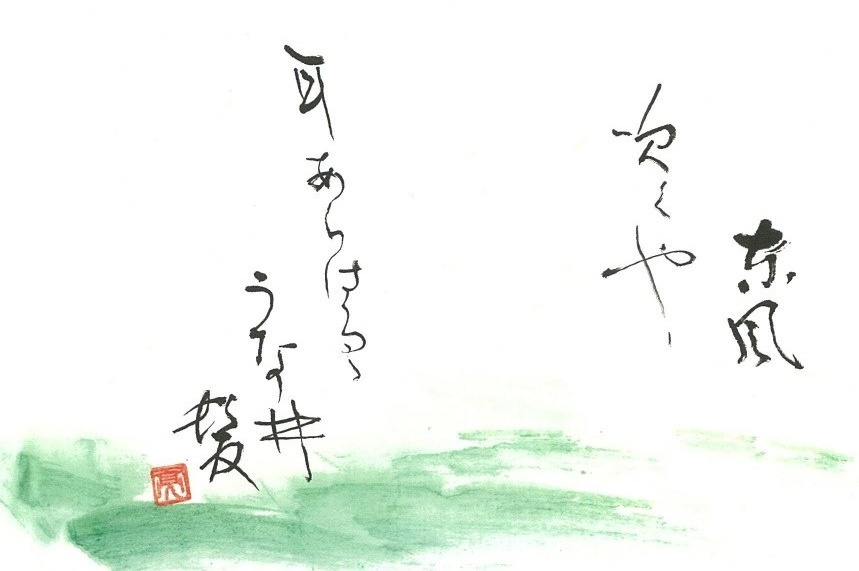 東風
吹くや
耳あらはるゝ
うな井
髪